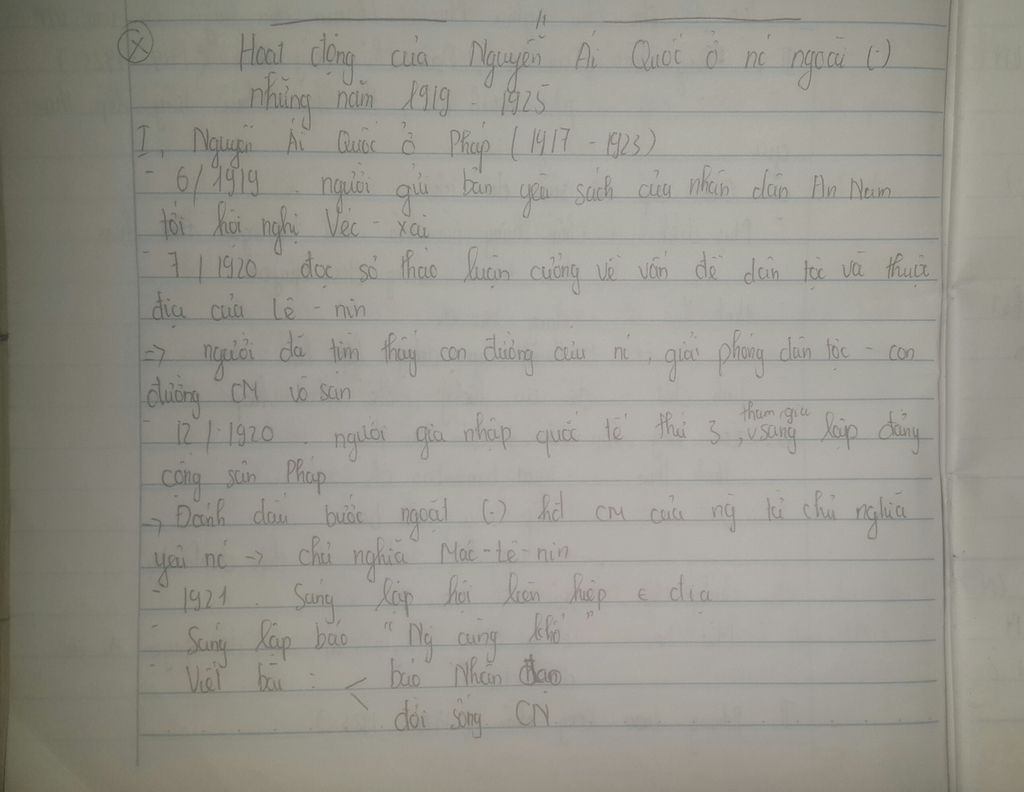 * Hoạt động của Nguyễn Ái Quốc ở nc ngoài (.)
những năm 1919 - 1925
I, Nguyễn Ái Quốc ở Pháp (1917 - 1923)
- 6/1919. người gửi bản yêu sách của nhân dân An Nam
tới hội nghị Véc - xai
- 7/1920 đọc sơ thảo luận cương về vấn đề dân tộc và thuộc
địa của Lê - nin
-> người đã tìm thấy con đường cứu nc, giải phóng dân tộc - con
đường CM vô sản
- 12/1920. người gia nhập quốc tế thứ 3, tham gia sáng lập đảng
cộng sản Pháp
-> Đánh dấu bước ngoặt (.) hđ CM của ng từ chủ nghĩa
yêu nc -> chủ nghĩa Mác-lê-nin
- 1921. Sáng lập hội liên hiệp € địa
- Sáng lập báo "Ng cùng khổ"
- Viết bài : < báo Nhân đạo
đời sống CN